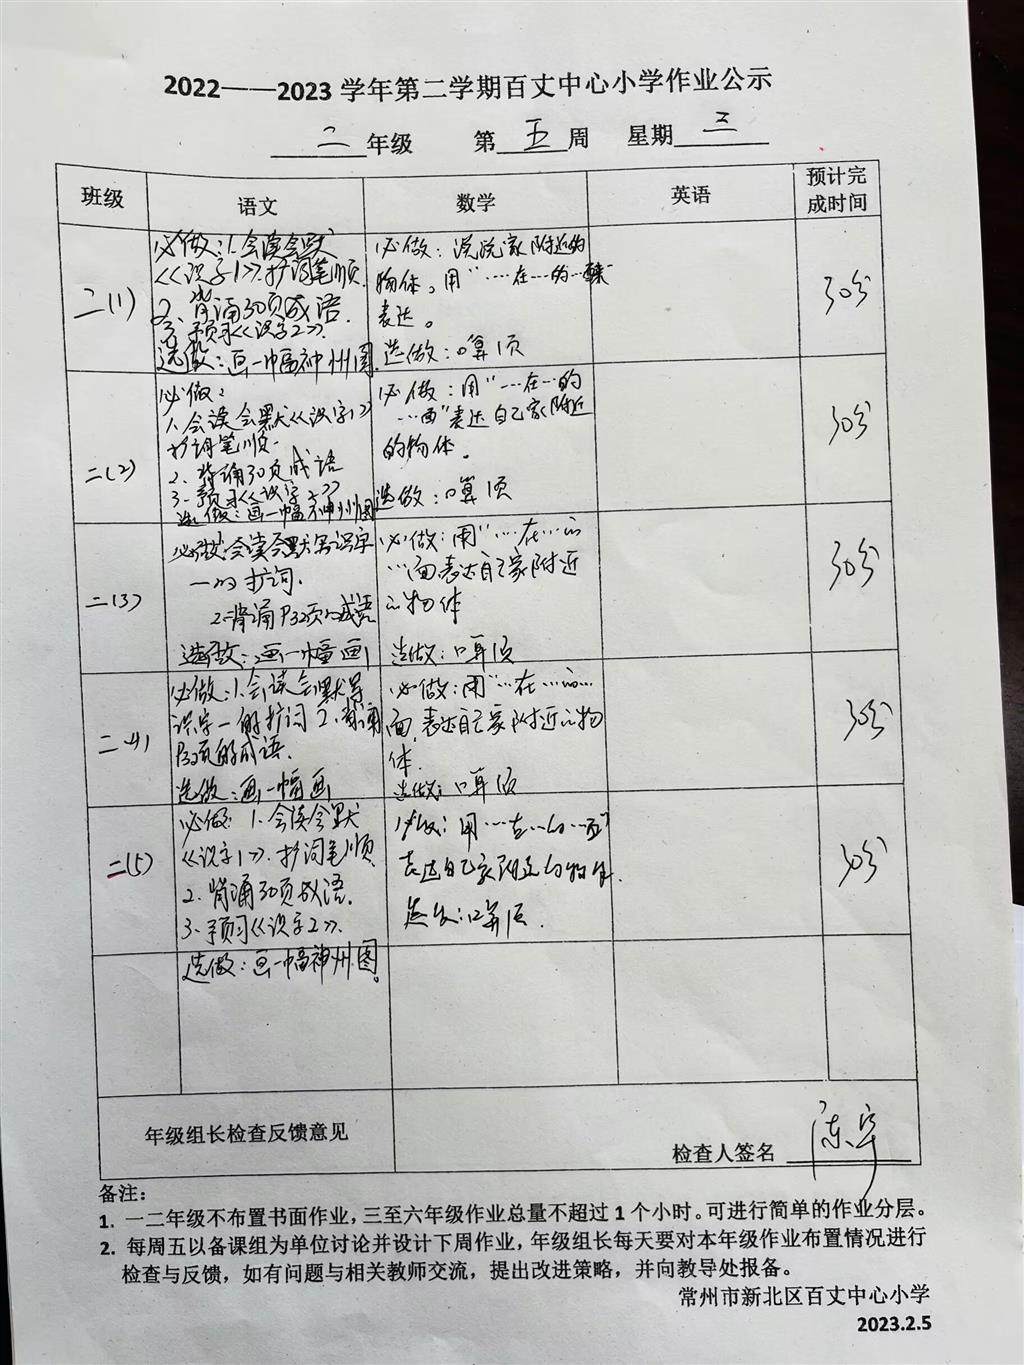 2022——2023 学年第二学期百丈中心小学作业公示
二年级 第五周 星期三
班级 语文 数学 英语 预计完成时间
二(1)
必做:1.会读会默
《识字1》.扩词笔顺.
2、背诵30页成语.
3.预习《识字2》.
选做:画一幅神州图.
必做:说说家附近的
物体。用"……在……的……
表达。
选做:口算1页
30分
二(2)
必做:
1.会读会默《识字1》
扩词笔顺.
2、背诵30页成语
3.预习《识字2》
选做:画一幅神州图
必做:用"……在……的
……面"表达自己家附近
的物体.
选做:口算1页
30分
二(3)
必做:会读会默写识字
一的扩词.
2.背诵P30页的成语
选做:画一幅画
必做:用"……在……的
……面表达自己家附近
的物体
选做:口算1页
30分
二(4)
必做:1.会读会默写
识字一的扩词 2.背诵
P30页的成语.
选做:画一幅画
必做:用"……在……的……
面.表达自己家附近的物
体.
选做:口算1页
30分
二(5)
必做:1.会读会默
《识字1》.扩词笔顺
2.背诵30页成语.
3.预习《识字2》.
选做:画一幅神州图。
必做:用……在……的……面"
表达自己家附近的物体.
选做:口算1页.
30分
年级组长检查反馈意见
检查人签名
备注:
1. 一二年级不布置书面作业,三至六年级作业总量不超过 1 个小时。可进行简单的作业分层。
2. 每周五以备课组为单位讨论并设计下周作业,年级组长每天要对本年级作业布置情况进行
检查与反馈,如有问题与相关教师交流,提出改进策略,并向教导处报备。
常州市新北区百丈中心小学
2023.2.5